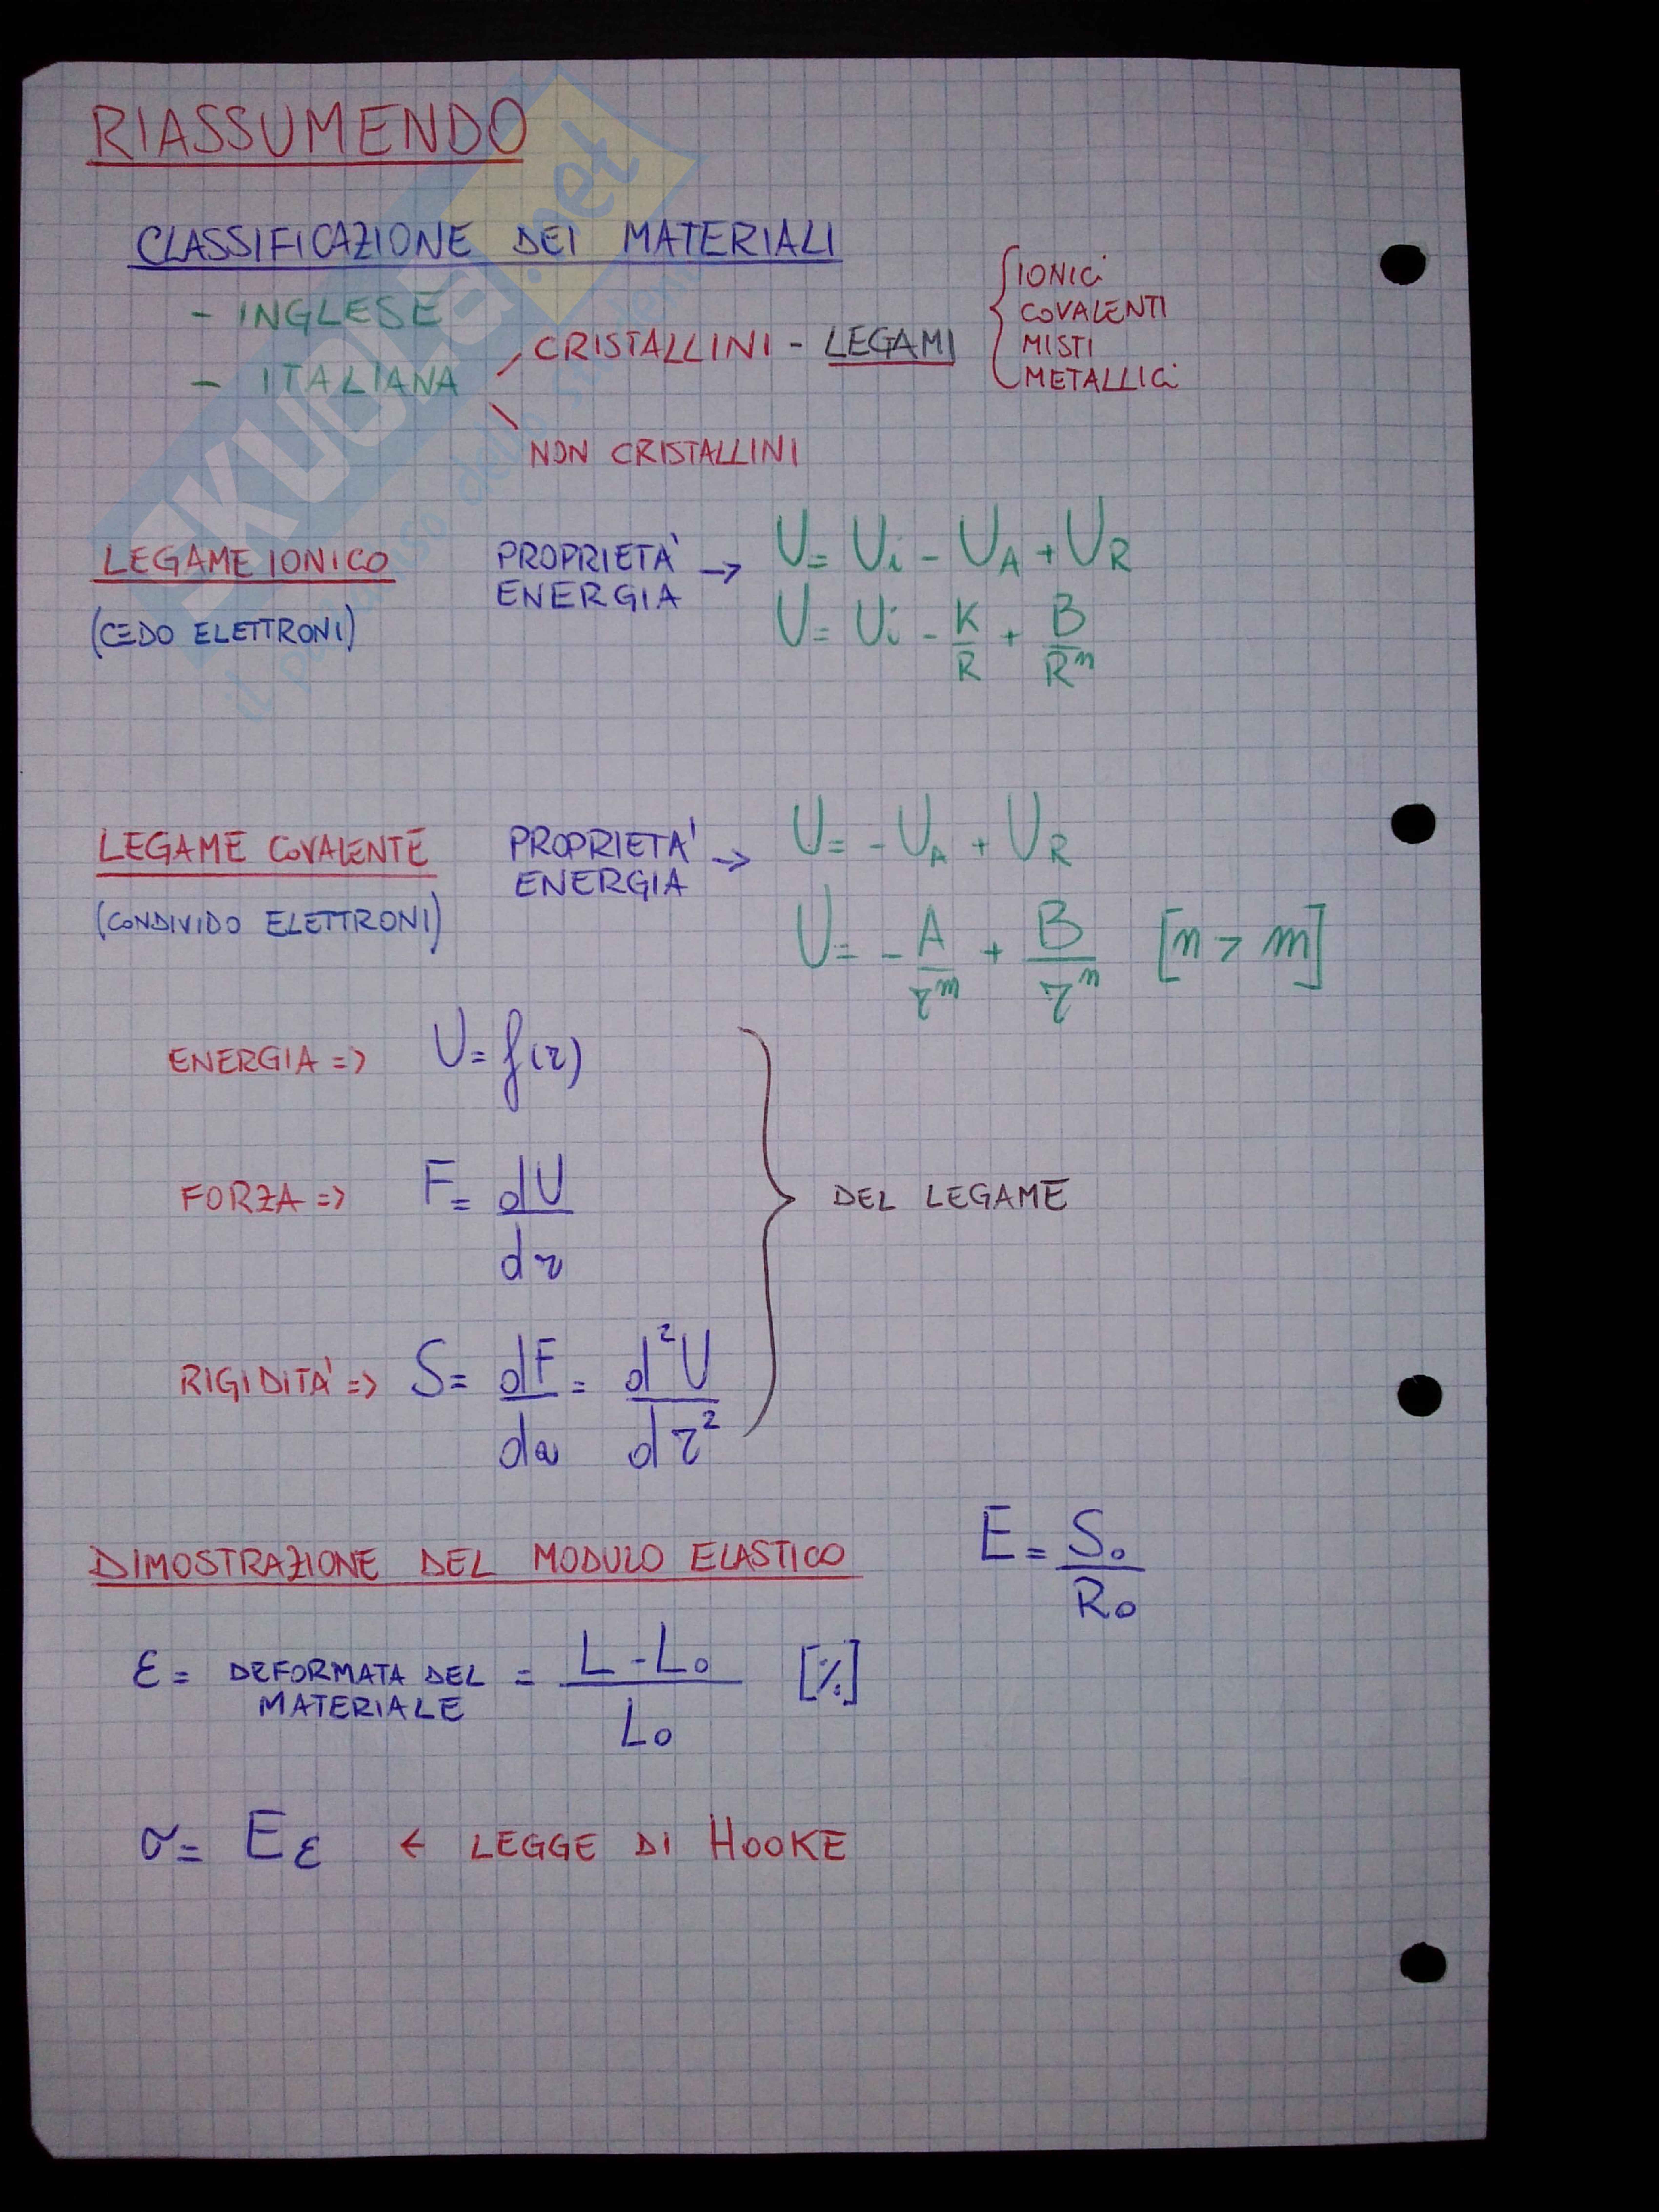 RIASSUMENDO
CLASSIFICAZIONE DEI MATERIALI
- INGLESE
- ITALIANA
CRISTALLINI - LEGAMI
IONICI
COVALENTI
MISTI
METALLICI
NON CRISTALLINI
LEGAME IONICO
(CEDO ELETTRONI)
PROPRIETA'
ENERGIA →
U = Ui - UA + UR
U = Ui - K/R + B/R^n
LEGAME COVALENTE
(CONDIVIDO ELETTRONI)
PROPRIETA'
ENERGIA →
U = - UA + UR
U = - A/r^m + B/r^n [n > m]
ENERGIA => U = f(r)
FORZA => F = dU/dr
RIGIDITA' => S = dF/da = d²U/dr²
DEL LEGAME
DIMOSTRAZIONE DEL MODULO ELASTICO E = S₀/R₀
ε = DEFORMATA DEL MATERIALE = L - L₀/L₀ [%]
σ = Eε ← LEGGE DI HOOKE
SKUOLA.net
il paradiso dello studente